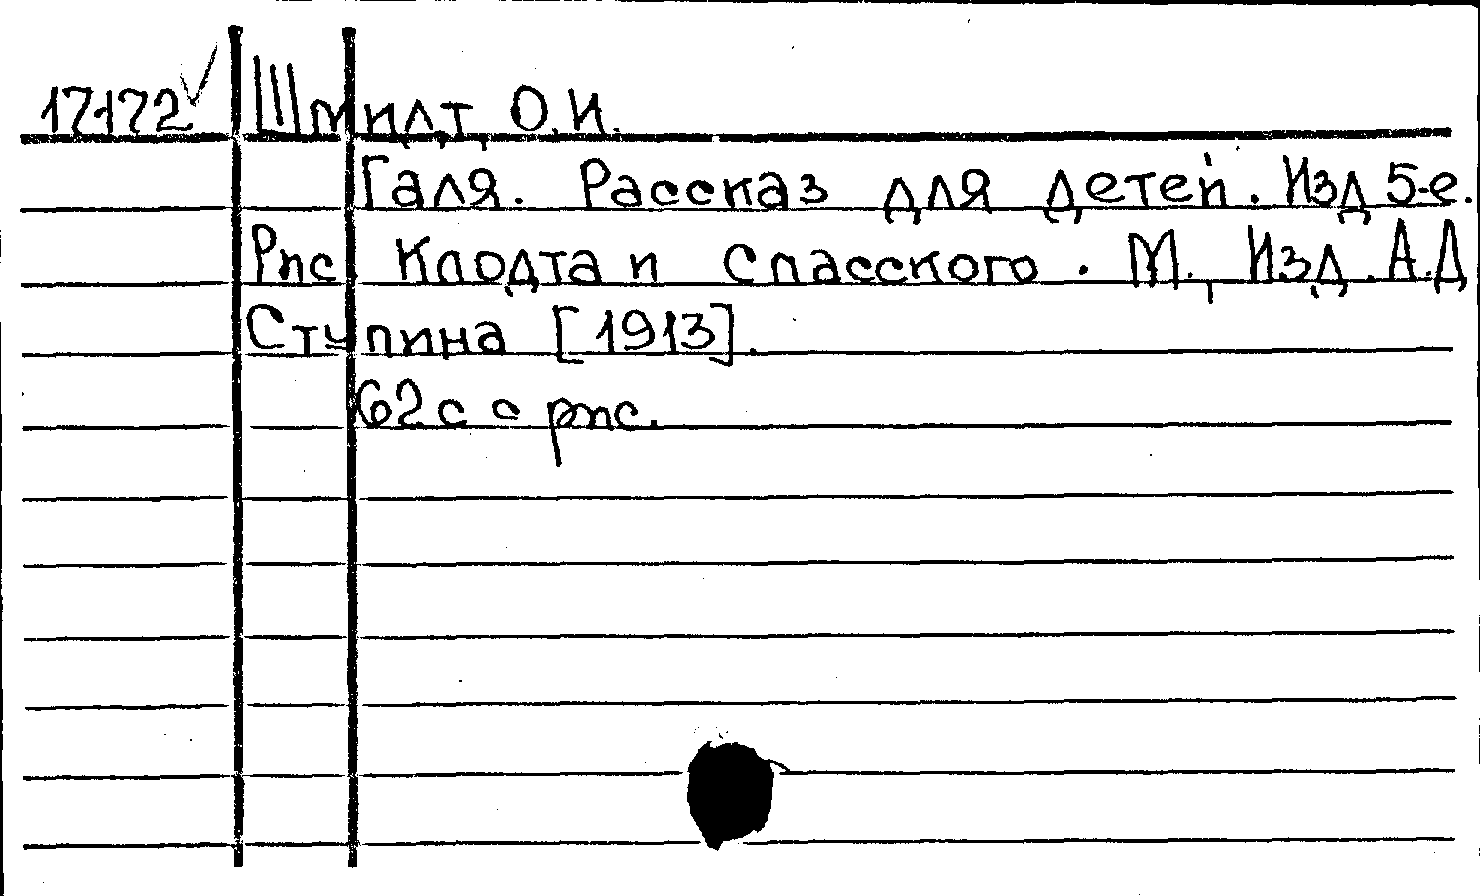 17172 Шмидт, О.И.
Галя. Рассказ для детей. Изд 5-е.
Рис. Клодта и Спасского. М., Изд. А.Д
Ступина [1913].
62 с с рис.